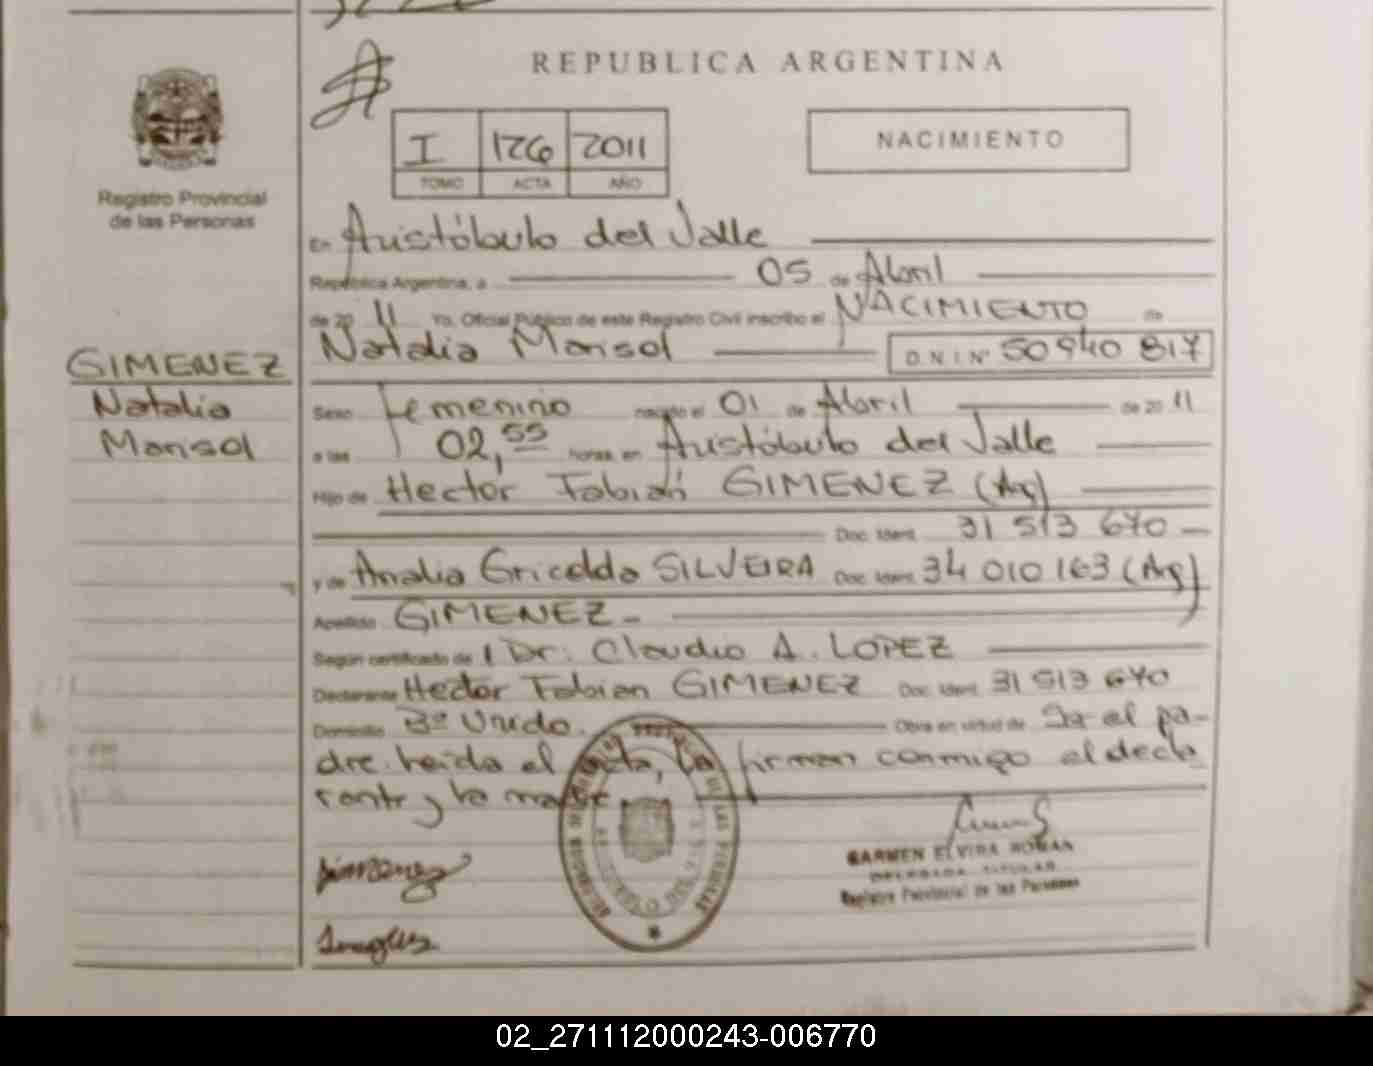 REPUBLICA ARGENTINA
I 126 2011
TOMO ACTA AÑO
NACIMIENTO
Registro Provincial
de las Personas
En Aristóbulo del Valle
República Argentina, a 05 de Abril
de 20 11 Yo, Oficial Público de este Registro Civil inscribo el NACIMIENTO de
Natalia Marisol D.N.I Nº 50 940 817
GIMENEZ
Natalia
Marisol
Sexo femenino nacido el 01 de Abril de 20 11
a las 02,55 horas, en Aristóbulo del Valle
Hijo de Hector Fabián GIMENEZ (Arg)
Doc. Ident. 31 513 670
y de Analia Gricelda SILVEIRA Doc. Ident. 34 010 163 (Arg)
Apellido GIMENEZ
Según certificado de Dr. Claudio A. LOPEZ
Declarante Hector Fabian GIMENEZ Doc. Ident. 31 513 670
Domicilio Bº Unido. Obra en virtud de Ser el pa-
dre. Leída el acta, la firman conmigo el decla
rante y la madre
CARMEN ELVIRA ROMAN
DELEGADA TITULAR
Registro Provincial de las Personas
02_271112000243-006770